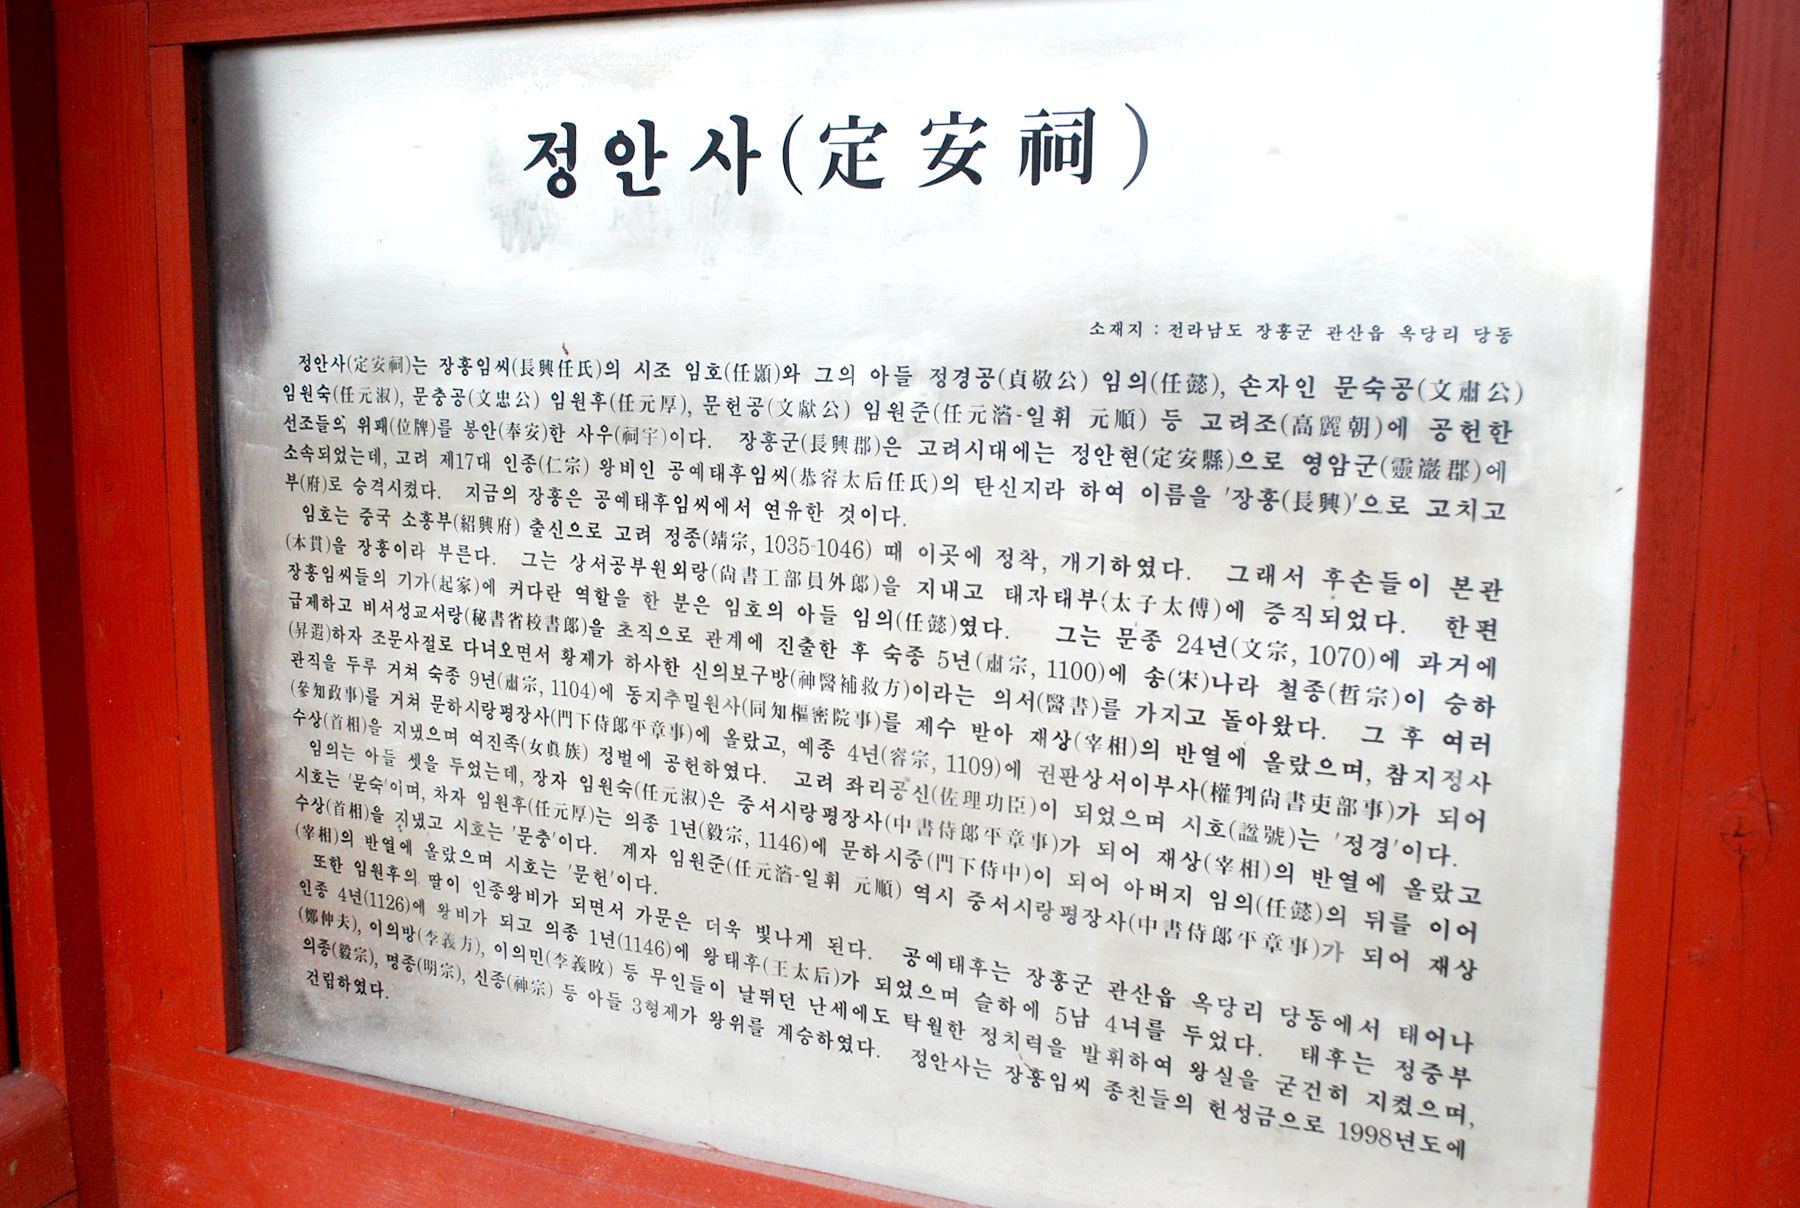 정안사(定安祠)
소재지 : 전라남도 장흥군 관산읍 옥당리 당동
정안사(定安祠)는 장흥임씨(長興任氏)의 시조 임호(任顥)와 그의 아들 정경공(貞敬公) 임의(任懿), 손자인 문숙공(文肅公)
임원숙(任元淑), 문충공(文忠公) 임원후(任元厚), 문헌공(文獻公) 임원준(任元濬-일휘 元順) 등 고려조(高麗朝)에 공헌한
선조들의 위패(位牌)를 봉안(奉安)한 사우(祠宇)이다. 장흥군(長興郡)은 고려시대에는 정안현(定安縣)으로 영암군(靈巖郡)에
소속되었는데, 고려 제17대 인종(仁宗) 왕비인 공예태후임씨(恭睿太后任氏)의 탄신지라 하여 이름을 '장흥(長興)'으로 고치고
부(府)로 승격시켰다. 지금의 장흥은 공예태후임씨에서 연유한 것이다.
임호는 중국 소흥부(紹興府) 출신으로 고려 정종(靖宗, 1035-1046) 때 이곳에 정착, 개기하였다. 그래서 후손들이 본관
(本貫)을 장흥이라 부른다. 그는 상서공부원외랑(尙書工部員外郞)을 지내고 태자태부(太子太傅)에 증직되었다. 한편
장흥임씨들의 기가(起家)에 커다란 역할을 한 분은 임호의 아들 임의(任懿)였다. 그는 문종 24년(文宗, 1070)에 과거에
급제하고 비서성교서랑(秘書省校書郞)을 초직으로 관계에 진출한 후 숙종 5년(肅宗, 1100)에 송(宋)나라 철종(哲宗)이 승하
(昇遐)하자 조문사절로 다녀오면서 황제가 하사한 신의보구방(神醫補救方)이라는 의서(醫書)를 가지고 돌아왔다. 그 후 여러
관직을 두루 거쳐 숙종 9년(肅宗, 1104)에 동지추밀원사(同知樞密院事)를 제수 받아 재상(宰相)의 반열에 올랐으며, 참지정사
(參知政事)를 거쳐 문하시랑평장사(門下侍郞平章事)에 올랐고, 예종 4년(睿宗, 1109)에 권판상서이부사(權判尙書吏部事)가 되어
수상(首相)을 지냈으며 여진족(女眞族) 정벌에 공헌하였다. 고려 좌리공신(佐理功臣)이 되었으며 시호(諡號)는 '정경'이다.
임의는 아들 셋을 두었는데, 장자 임원숙(任元淑)은 중서시랑평장사(中書侍郞平章事)가 되어 재상(宰相)의 반열에 올랐고
시호는 '문숙'이며, 차자 임원후(任元厚)는 의종 1년(毅宗, 1146)에 문하시중(門下侍中)이 되어 아버지 임의(任懿)의 뒤를 이어
수상(首相)을 지냈고 시호는 '문충'이다. 계자 임원준(任元濬-일휘 元順) 역시 중서시랑평장사(中書侍郞平章事)가 되어 재상
(宰相)의 반열에 올랐으며 시호는 '문헌'이다.
또한 임원후의 딸이 인종왕비가 되면서 가문은 더욱 빛나게 된다. 공예태후는 장흥군 관산읍 옥당리 당동에서 태어나
인종 4년(1126)에 왕비가 되고 의종 1년(1146)에 왕태후(王太后)가 되었으며 슬하에 5남 4녀를 두었다. 태후는 정중부
(鄭仲夫), 이의방(李義方), 이의민(李義旼) 등 무인들이 날뛰던 난세에도 탁월한 정치력을 발휘하여 왕실을 굳건히 지켰으며,
의종(毅宗), 명종(明宗), 신종(神宗) 등 아들 3형제가 왕위를 계승하였다. 정안사는 장흥임씨 종친들의 헌성금으로 1998년도에
건립하였다.